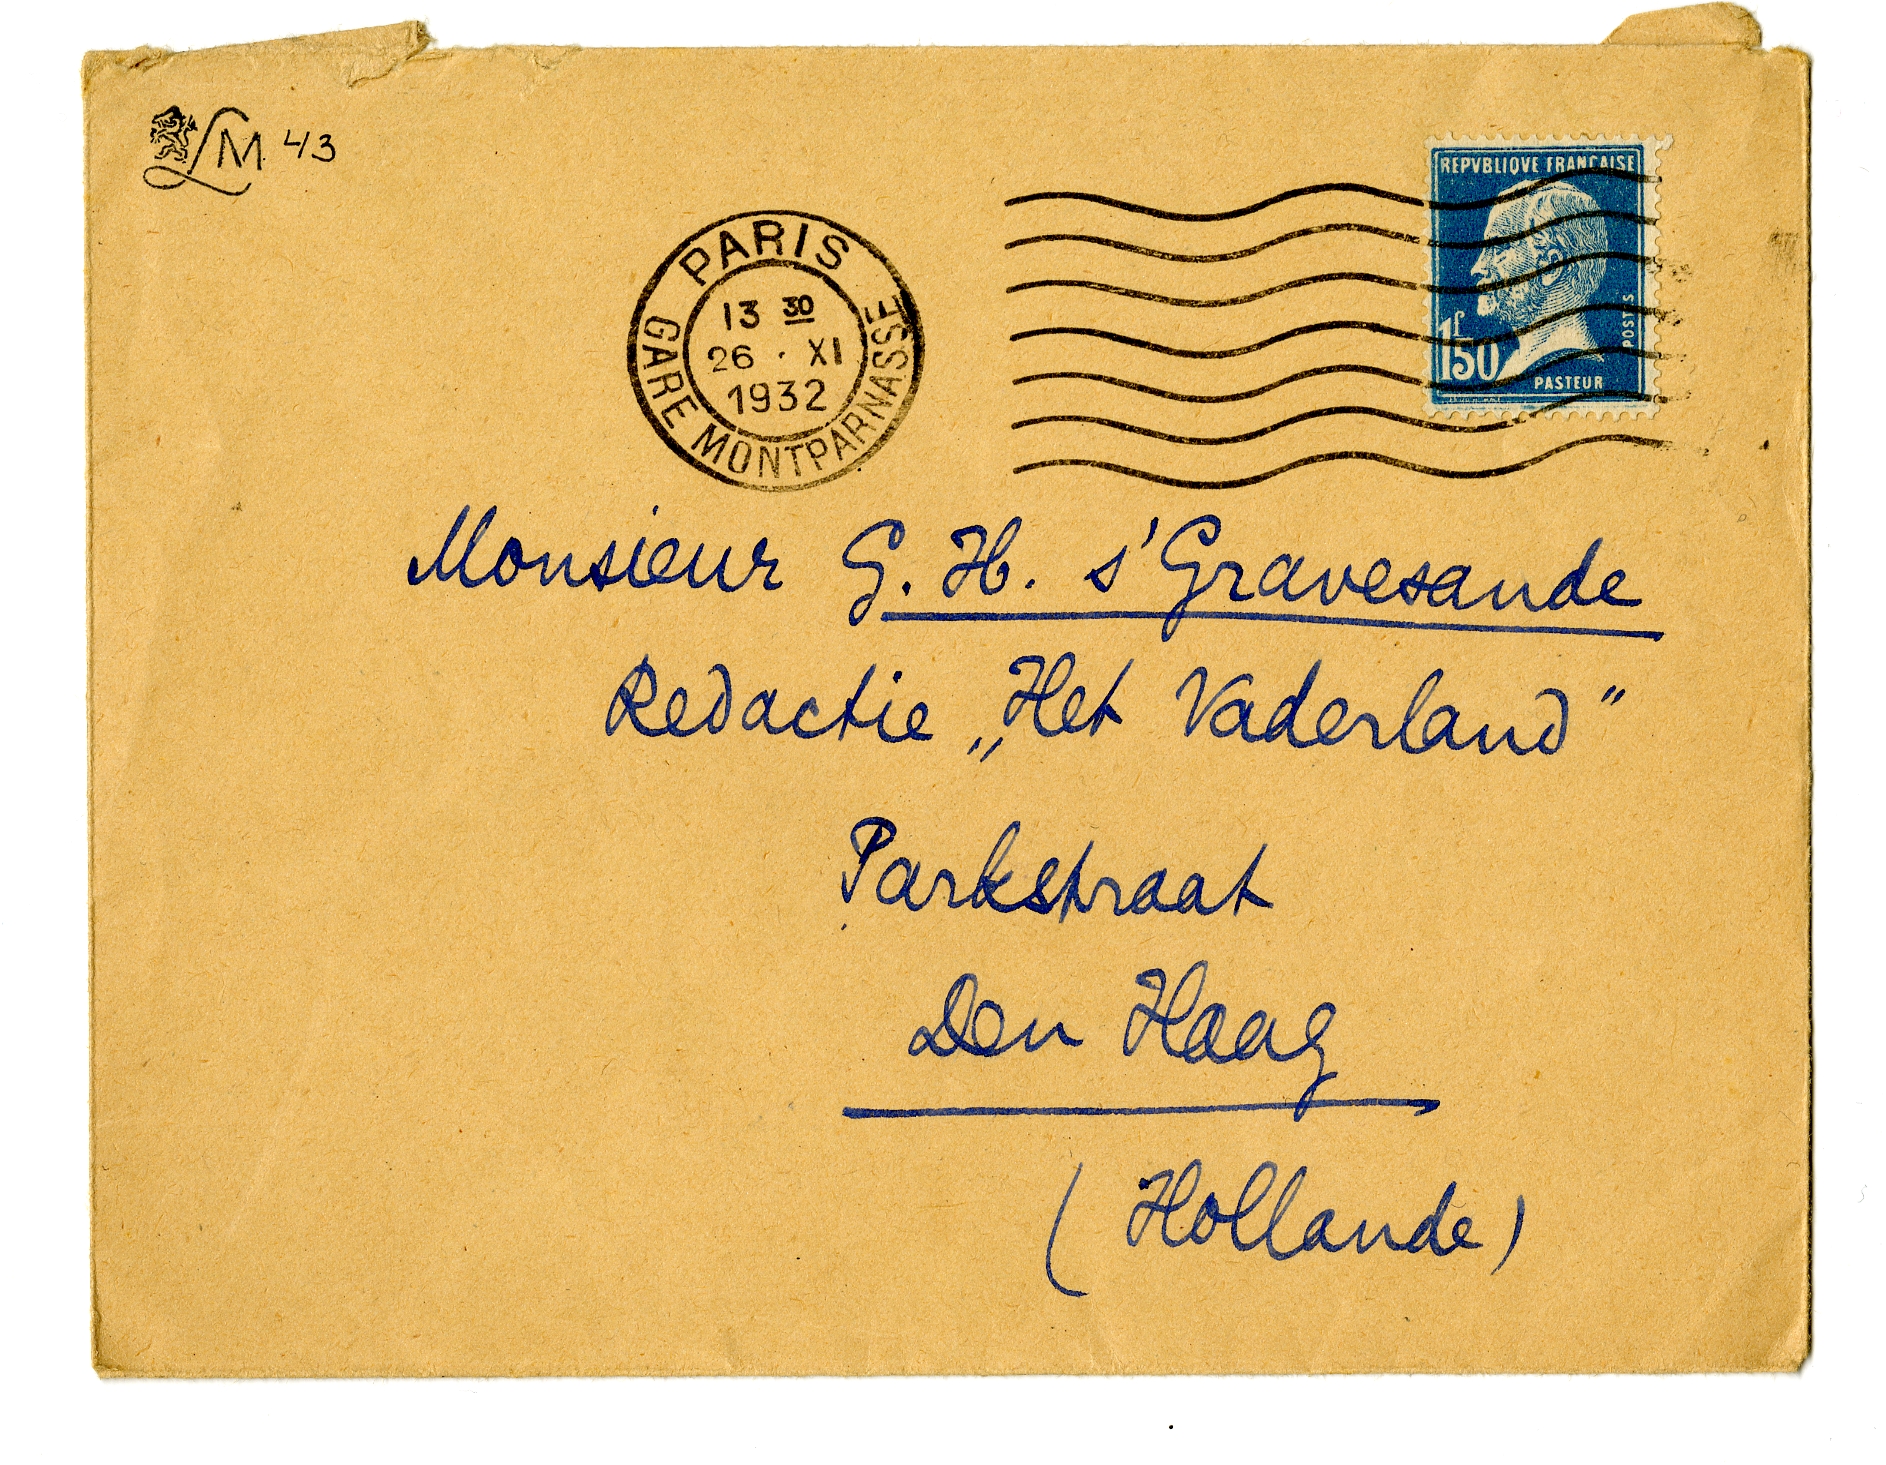 LM 43
REPVBLIQVE FRANCAISE
POSTES
1f50
PASTEUR
PARIS
13 30
26 · XI
1932
GARE MONTPARNASSE
Monsieur G. H. s'Gravesande
Redactie „Het Vaderland"
Parkstraat
Den Haag
(Hollande)